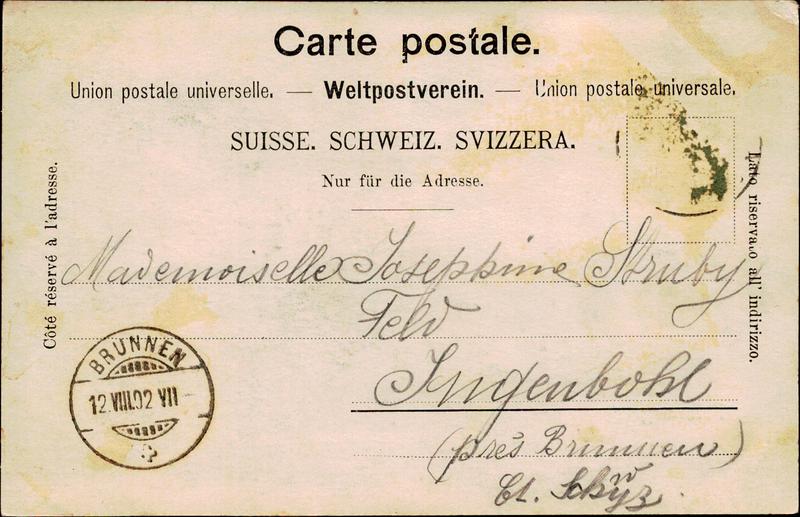 Carte postale.
Union postale universelle. — Weltpostverein. — Union postale universale.
SUISSE. SCHWEIZ. SVIZZERA.
Nur für die Adresse.
Côté réservé à l'adresse.
Lato riservato all' indirizzo.
Mademoiselle Josephine Struby
Feld
Ingenbohl
(près Brunnen)
Ct. Schwyz
BRUNNEN
12.VIII.02 VII